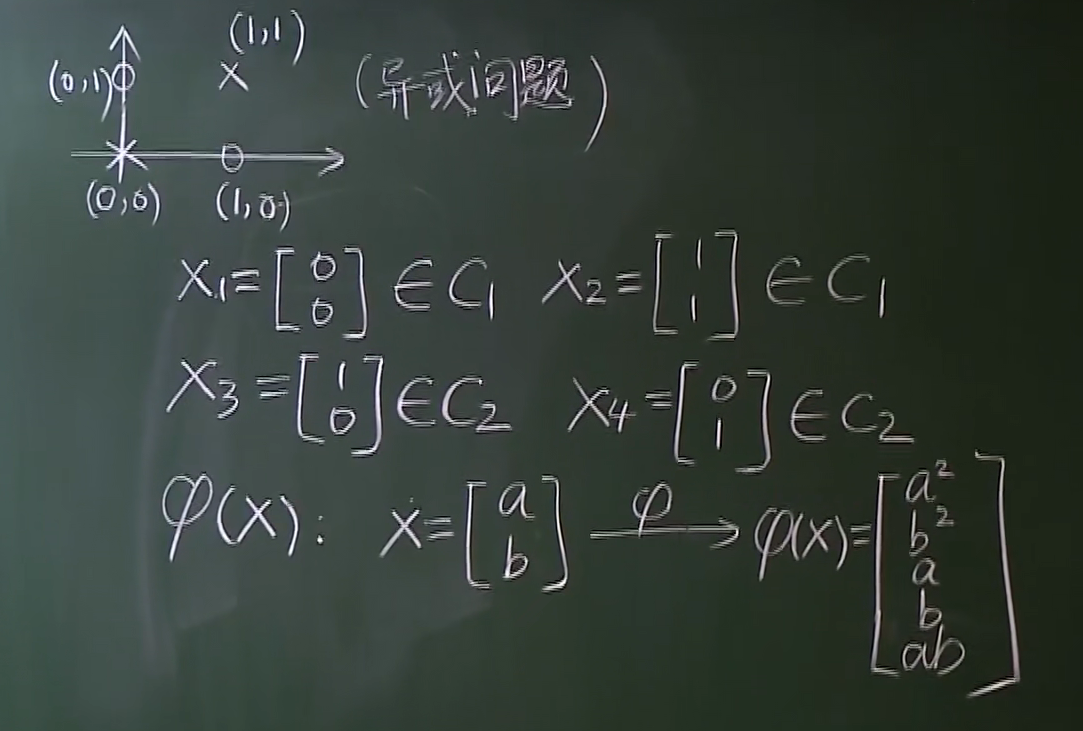 (1,1)
(0,1) (异或问题)
(0,0) (1,0)
X₁=[0 0] ∈ C₁ X₂=[1 1] ∈ C₁
X₃=[1 0] ∈ C₂ X₄=[0 1] ∈ C₂
φ(X): X=[a b] φ→ φ(X)=[a² b² a b ab]